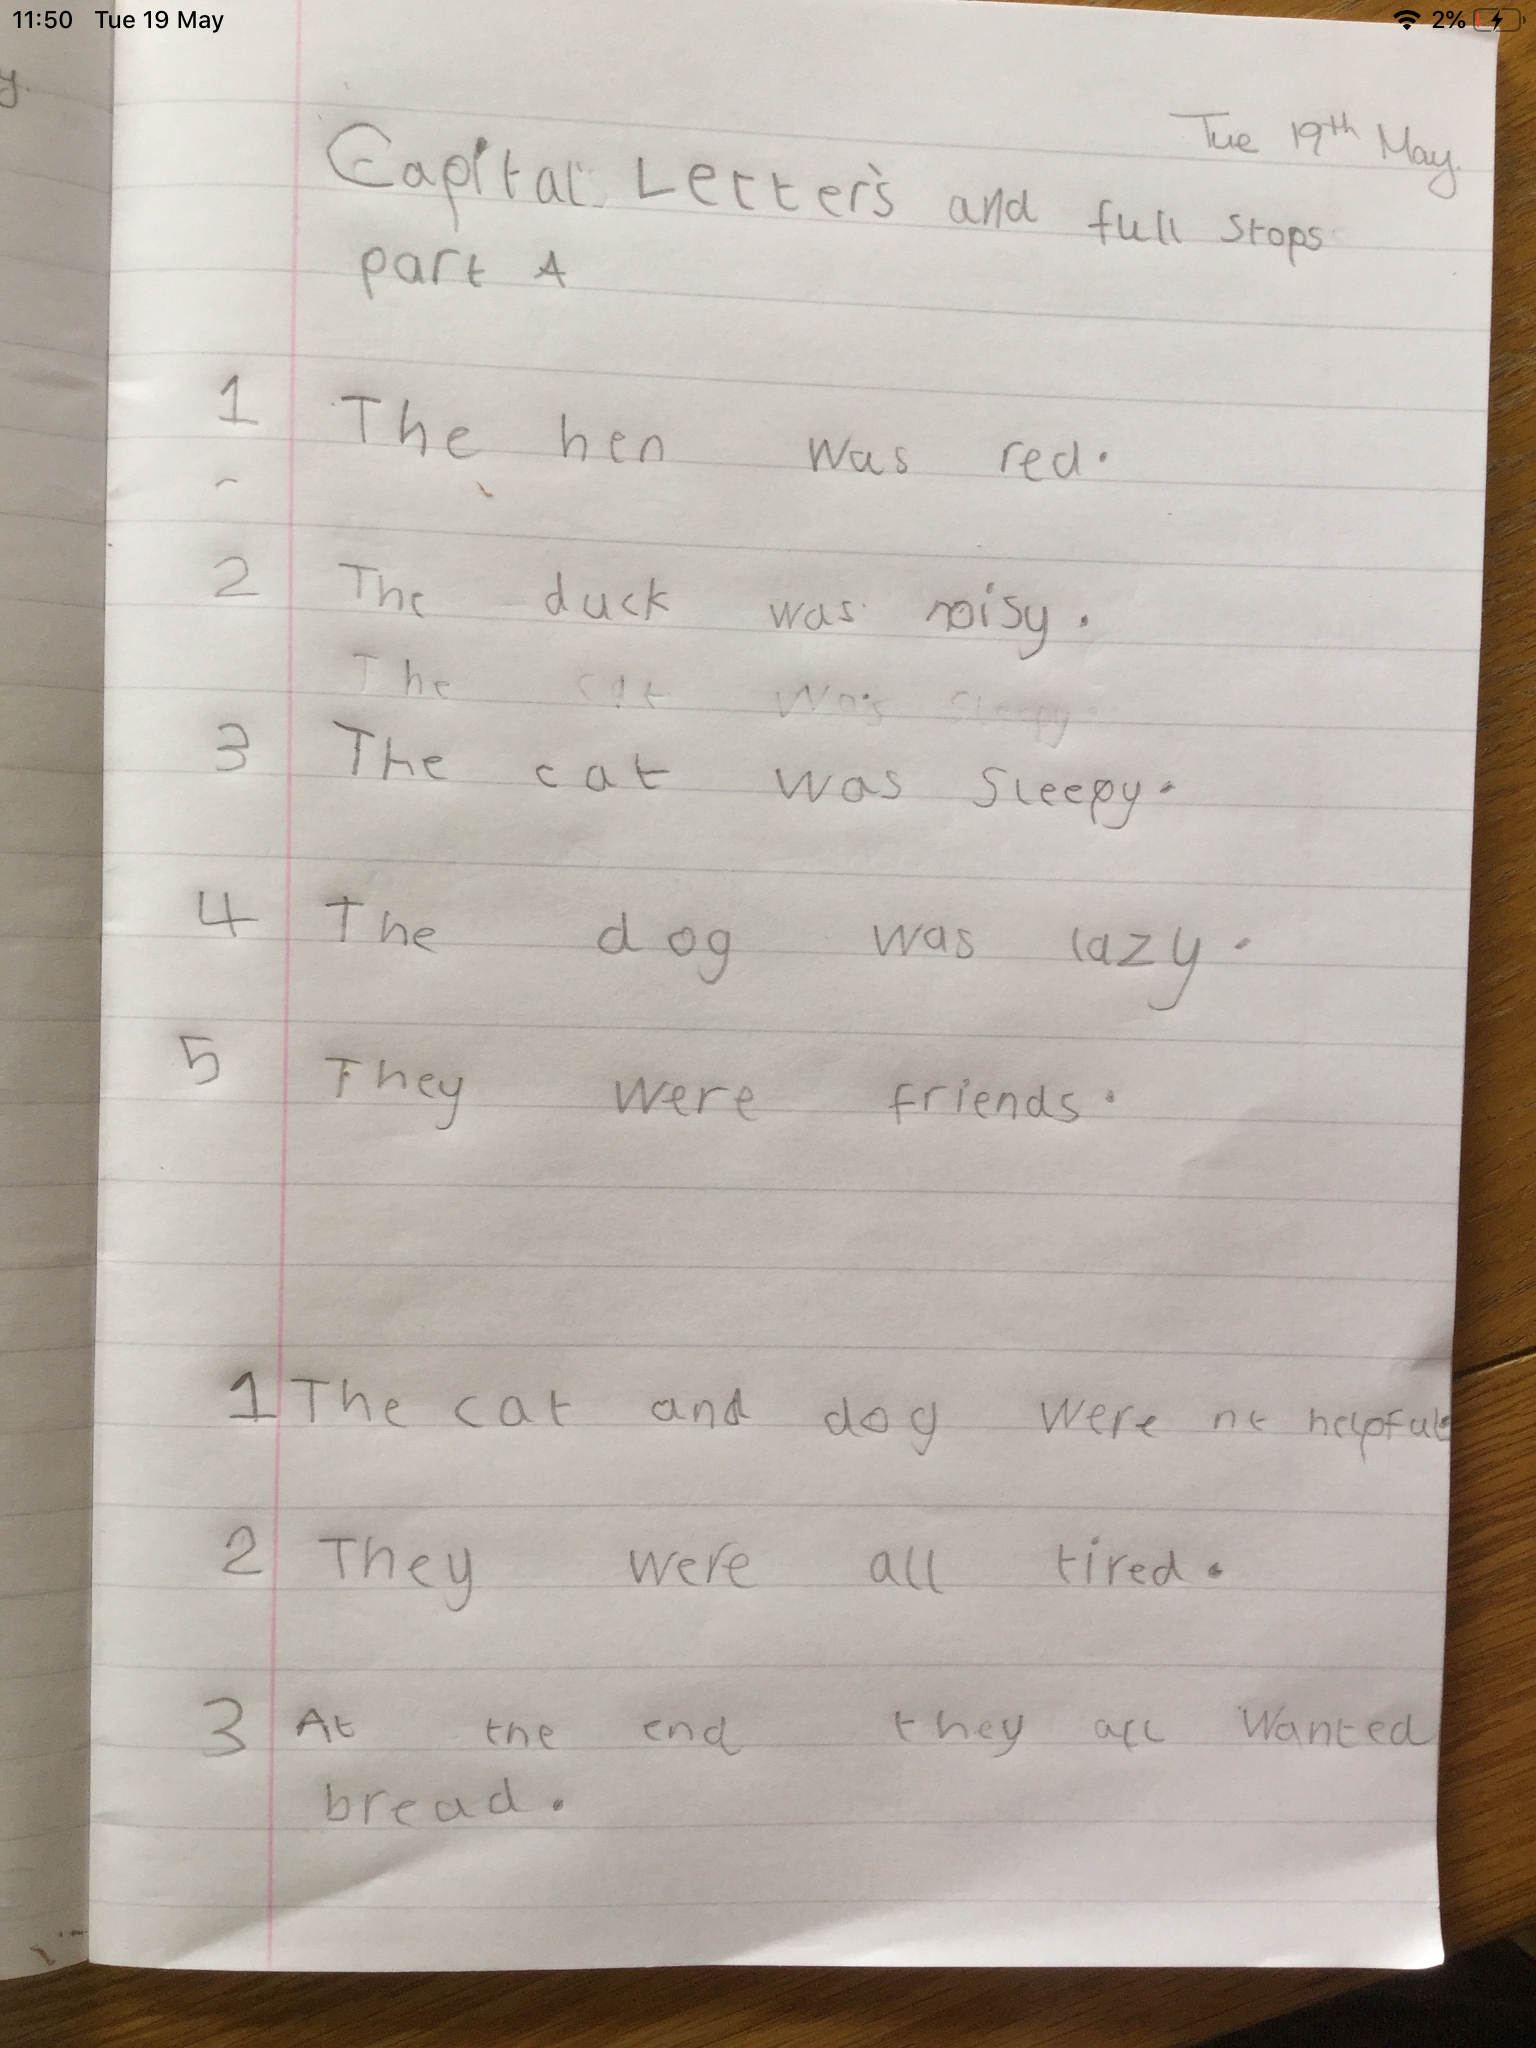 11:50 Tue 19 May 2%
y.
Tue 19th May.
Capital Letters and full stops
part A
1 The hen was red.
2 The duck was noisy.
The cat was sleepy.
3 The cat was sleepy.
4 The dog was lazy.
5 They were friends.
1 The cat and dog were nt helpful.
2 They were all tired.
3 At the end they all wanted
bread.